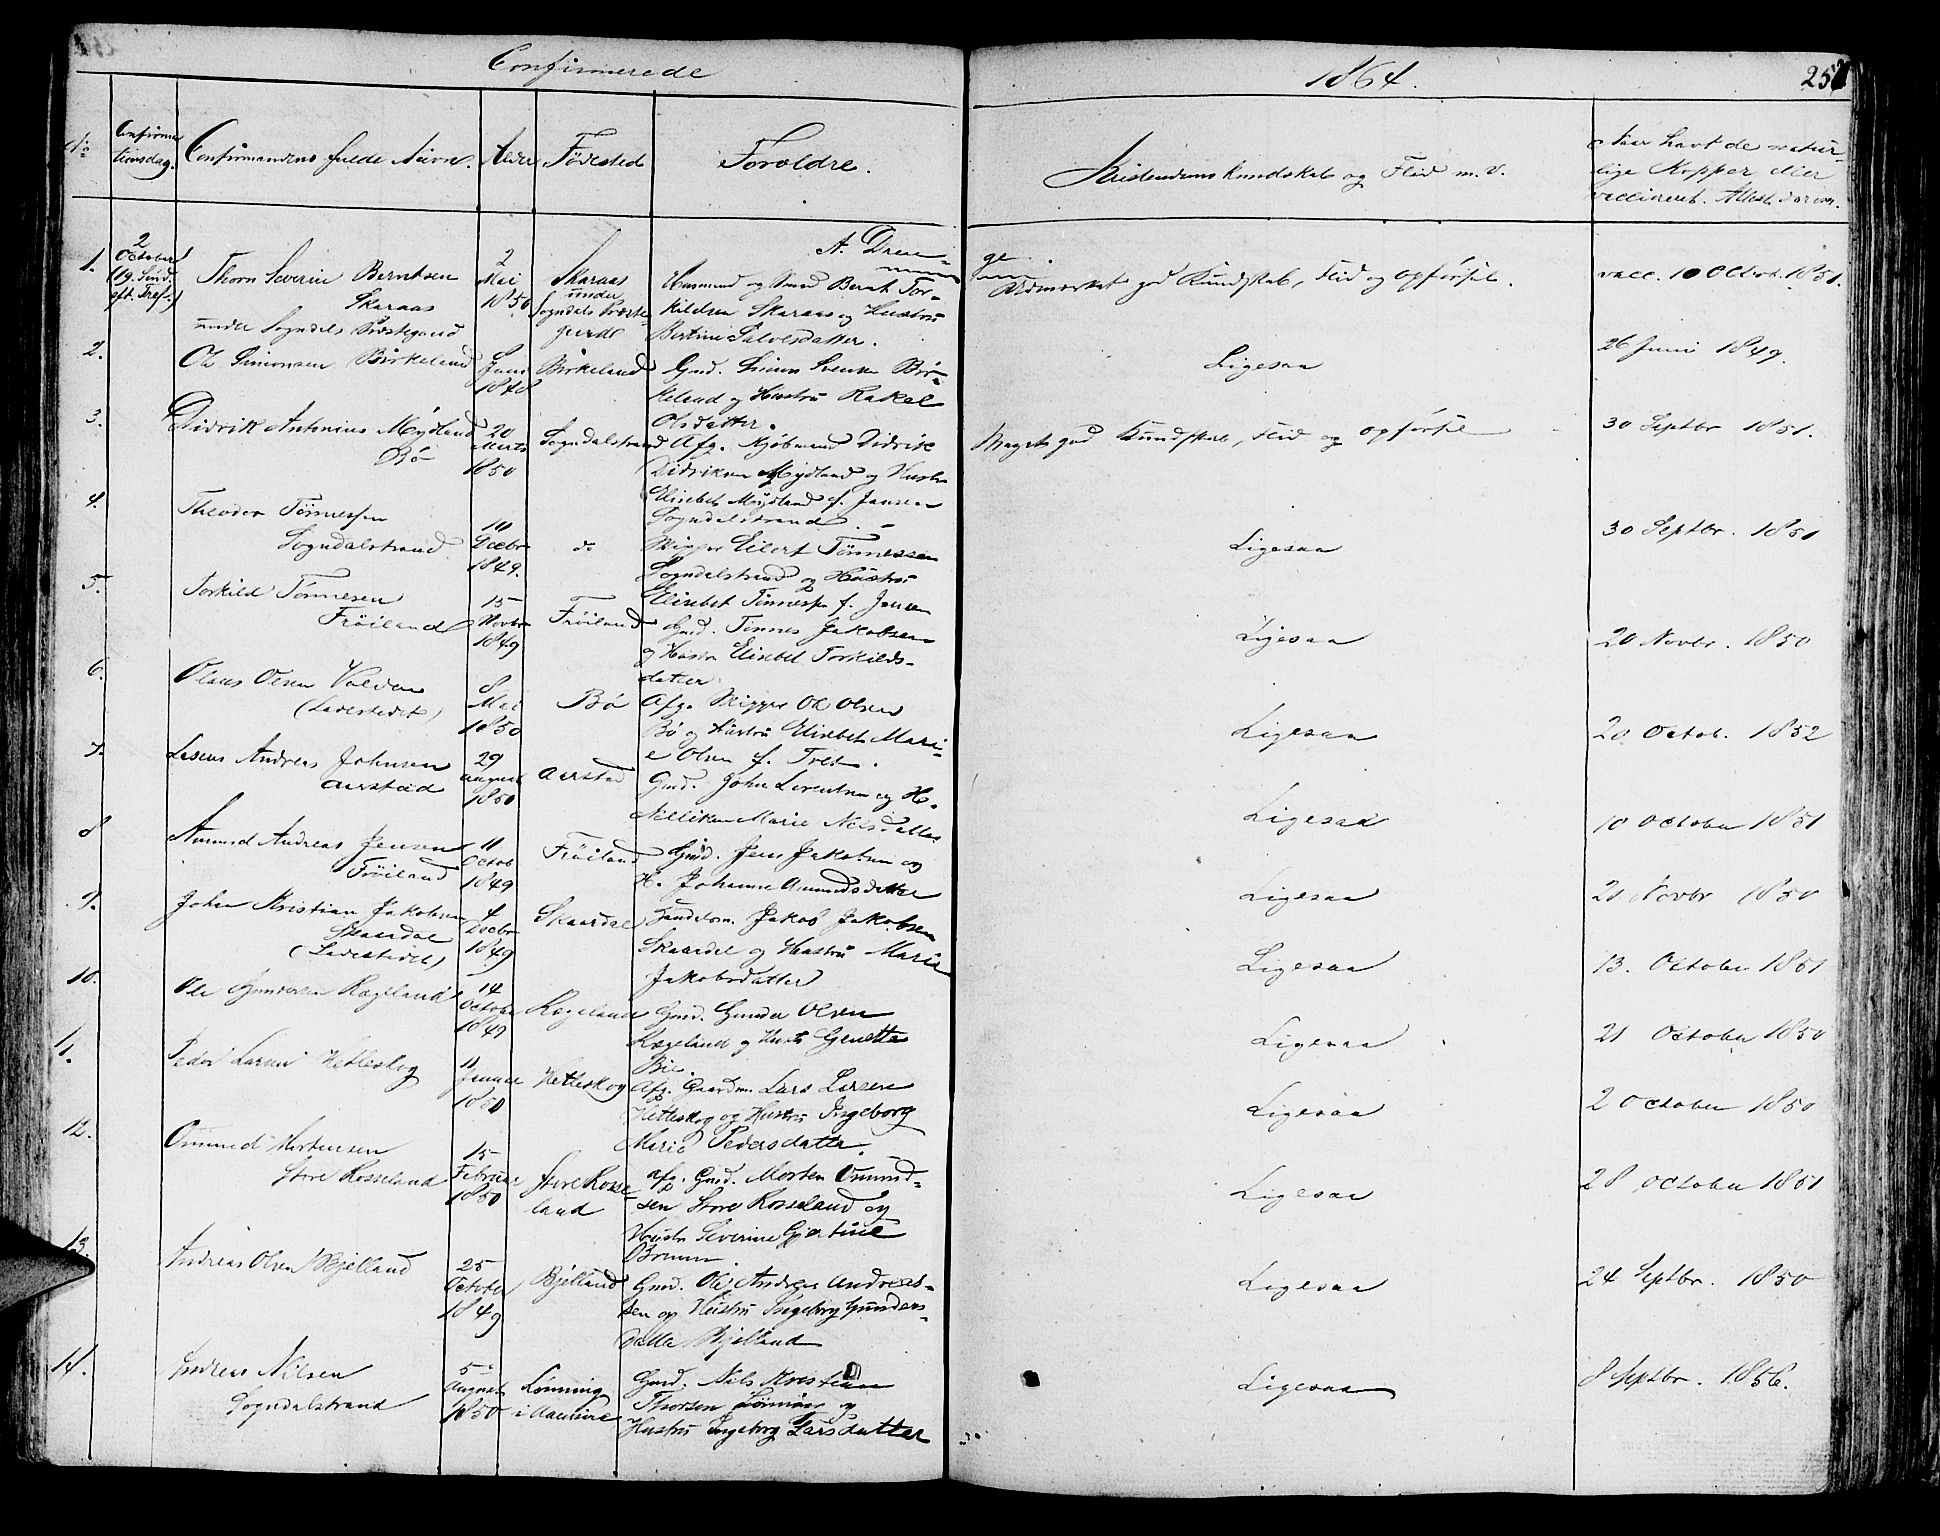 Confirmerede
1864.
No
Confirma
tionsdag.
Confirmandens fulde Navn.
Alder
Födested
Foroldre.
Kristendomskundskab og Flid m. v.
Naar havt de natur-
lige Kopper eller
vaccineret. Attest derom.
A. Dren-
ge.
1.
2
October
(19. Sönd.
eft. Tref.)
Thorn Severin Berntsen
Skaraas
under Sogndals Præstegaard
2
Mai
1850
Skaraas
under
Sogndals Præste-
gaard
Husmand og Smed Bernt Tor-
kildsen Skaraas og Hustru
Bertine Salvesdatter.
Udmærket god Kundskab, Flid og Opförsel.
vacc. 10 Octbr. 1851.
2.
Ole Simonsen Birkeland
8
Juni
1848
Birkeland
Gmd. Simon Svensen Bir-
keland og Hustru Rakel
Olsdatter.
Ligesaa
26 Juni 1849.
3.
Didrik Antonius Mydland
Bö
20
Marts
1850
Sogndalstrand
Afg. Kjöbmand Didrik
Didriksen Mydland og Hustru
Elisebet Mydland f. Jansen
Sogndalstrand.
Meget god Kundskab, Flid og Opförsel
30 Septbr 1851.
4.
Theodor Tönnessen
Sogndalstrand
10
Decbr
1849.
do
Skipper Eilert Tönnessen
Sogndalstrand og Hustru
Elisebet Tönnessen f. Jansen
Ligesaa
30 Septbr. 1851
5.
Torkild Tönnesen
Fröiland
15
Novbr
1849
Fröiland
Gmd. Tönnes Jakobsen
og Hustru Elisebet Torkilds-
datter.
Ligesaa
20 Novbr. 1850
6.
Olaus Olsen Valven
(Ladestedet)
8
Mai
1850
Bö
Afg. Skipper Ole Olsen
Bö og Hustru Elisebet Mari-
e Olsen f. Tret.
Ligesaa
20 Octob. 1852
7.
Andreas Johnsen
Aarstad
29
August
1850
Aarstad
Gmd. John Lorentsen og H.
Nellikea Marie Nilsdatter
Ligesaa
10 October 1851
8
Aamund Andreas Jensen
Fröiland
11
Octob
1849
Fröiland
Gmd. Jens Jakobsen og
H. Johanne Amundsdatter
Ligesaa
21 Novbr 1850
9.
Johan Kristian Jakobsen
Skaardal
(Ladestedet)
4
Decbr
1849
Skaardal
Handelsm. Jakob Jakobsen
Skaardal og Hustru Maria
Jakobsdatter
Ligesaa
13. October 1851
10.
Ole Gundersen Rægeland
14
October
1849
Rægeland
Gmd. Gunder Olsen
Rægeland og Hustru Genette
Bie.
Ligesaa
21 October 1850
11.
Peder Larsen Hetleskog
11
Januar
1850
Hetleskog
Afg. Gaardm. Lars Larsen
Hetleskog og Hustru Ingeborg
Marie Pedersdatter.
Ligesaa
2 October 1850
12.
Ommund Mortensen
Store Rosseland
15
Februar
1850
Store Rosse-
land
afg. Gmd. Morten Omund-
sen Store Rosseland og
Hustru Severine Gjertine
Brunn
Ligesaa
28 October 1851
13.
Andreas Olsen Bjelland
25
October
1849
Bjelland
Gmd. Ole Andreas Andreas-
sen og Hustru Ingeborg Gunders-
datter Bjelland
Ligesaa
24 Septbr. 1850
14.
Andreas Nilsen
Sogndalstrand
5
August
1850
Lönning
i Aaensire
Gmd. Nils Kristian
Thorsen Lönning og
Hustru Ingeborg Larsdatter
Ligesaa
8 Septbr. 1856.